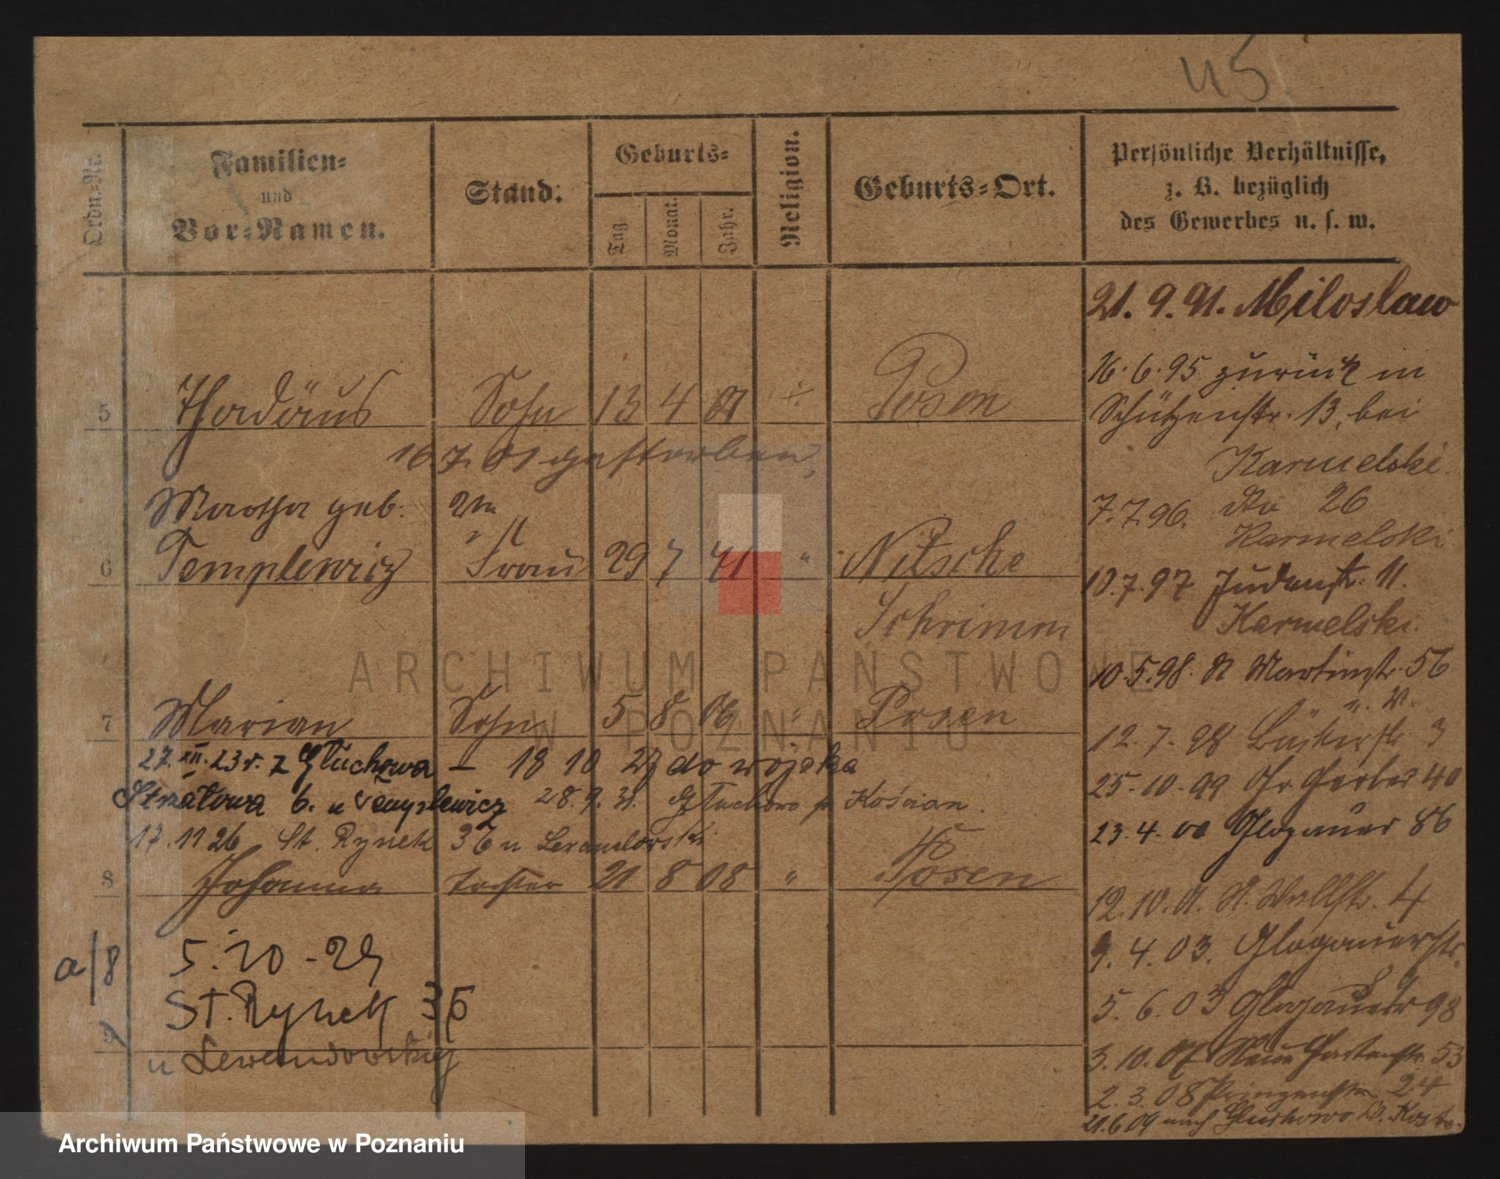 45
Ordn=Nr.
Familien=
und
Vor=Namen.
Stand.
Geburts=
Tag.
Monat.
Jahr.
Religion.
Geburts=Ort.
Persönliche Verhältnisse,
z. B. bezüglich
des Gewerbes u. s. w.
5 Thadäus Sohn 13 4 01 Posen
16 7. 01 gestorben.
Martha geb.
6 Templewicz Frau 29 7 41 " Nitsche
Schrimm
7 Marian Sohn 5 8 06 " Posen
27 XII. 23 r. z Głuchowa — 18 10 27 do wojska
6. u 28.9.31. Głuchowo p. Kościan.
17.11 26 St. Rynek 36 u Lewandowski
8 Johanna Tochter 21 8 08 " Posen
a/8 5.10-29
St. Rynek 36
9 u Lewandowskiej
21. 9. 91. Miloslaw
16.6.95 zurück in
Schützenstr. 13, bei
Karmelski.
7.7.96. do 26
Karmelski
10.7.97 Judenstr. 11.
Karmelski.
10.5.98. St Martinstr. 56
12. 7. 98 3
25.10.99 Gr Gerber 40
23.4.00 Glogauer 86
12.10.01. St. Wallstr. 4
9. 4. 03. Glogauerstr.
5. 6. 03 Glogauer 98
3.10.07 Neue Gartenstr. 53
2. 3. 08 Prinzenstr. 24
21.6.09 nach Gluchowo Kr. Kosten
ARCHIWUM PAŃSTWOWE
W POZNANIU
Archiwum Państwowe w Poznaniu